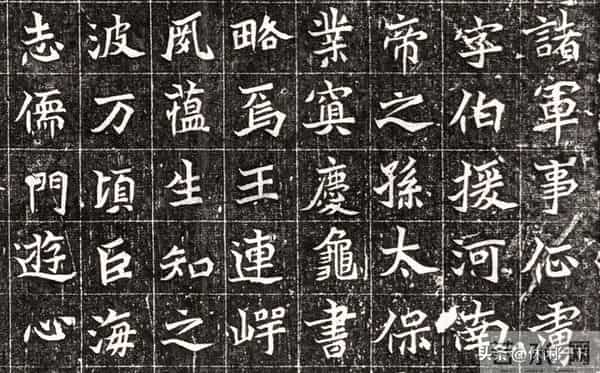 諸軍事征虜
字伯援河南
帝之孫太保
業寘慶龜書
略焉王連
風蘊生知之
波万頃巨海
志儒門遊心
头条